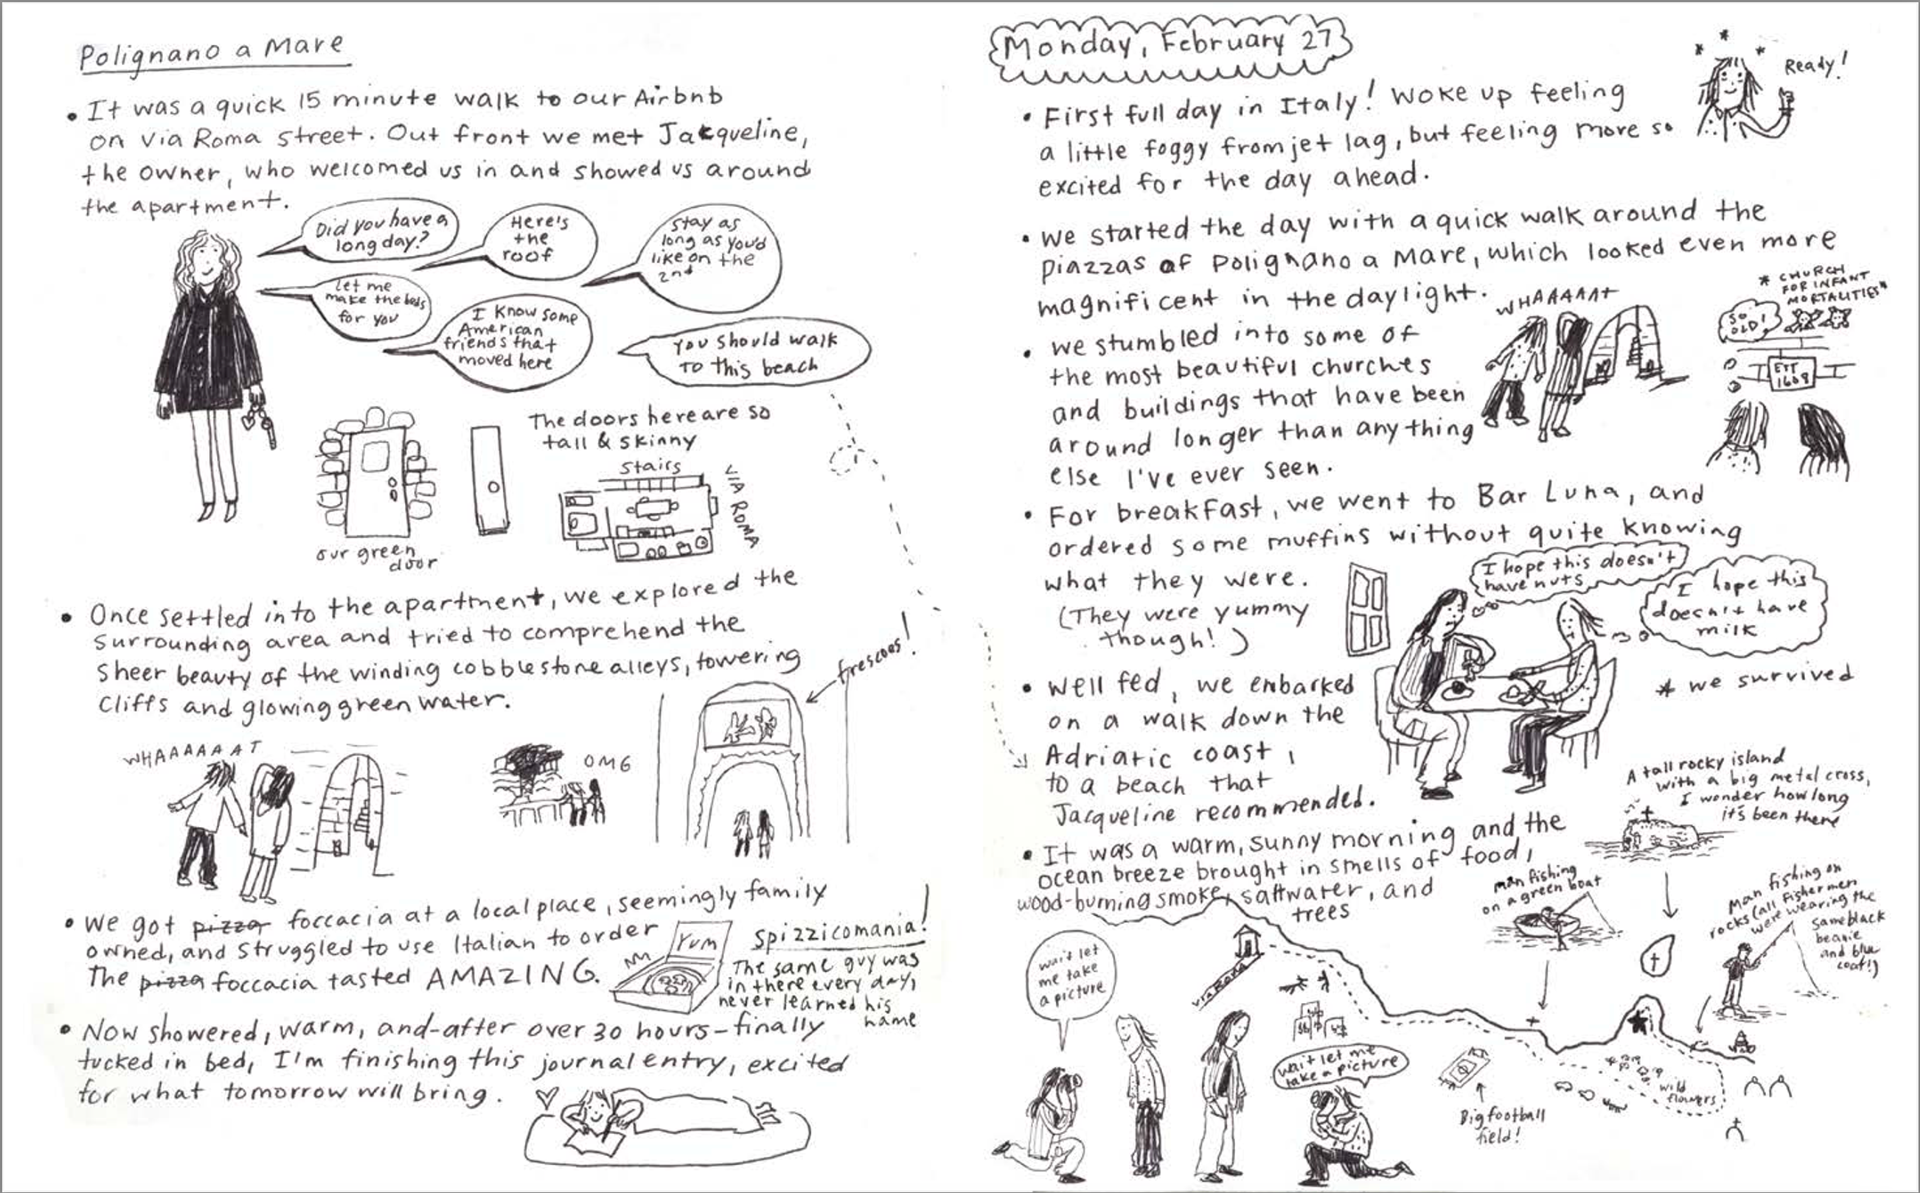 Polignano a Mare
• It was a quick 15 minute walk to our Airbnb
on via Roma street. Out front we met Jacqueline,
the owner, who welcomed us in and showed us around
the apartment.
Did you have a
long day?
Here's
the
roof
Stay as
long as you'd
like on the
2nd
let me
make the beds
for you
I know some
American
friends that
moved here
You should walk
to this beach
The doors here are so
tall & skinny
stairs
VIA ROMA
our green
door
• Once settled into the apartment, we explored the
surrounding area and tried to comprehend the
sheer beauty of the winding cobblestone alleys, towering
cliffs and glowing green water.
frescoes!
WHAAAAAAT
OMG
• We got pizza foccacia at a local place, seemingly family
owned, and struggled to use Italian to order
The pizza foccacia tasted AMAZING.
Yum
Spizzicomania!
The same guy was
in there every day,
never learned his
name
• Now showered, warm, and-after over 30 hours-finally
tucked in bed, I'm finishing this journal entry, excited
for what tomorrow will bring.
Monday, February 27
Ready!
• First full day in Italy! Woke up feeling
a little foggy from jet lag, but feeling more so
excited for the day ahead.
• We started the day with a quick walk around the
piazzas of Polignano a Mare, which looked even more
magnificent in the daylight.
WHAAAAAT
* CHURCH
FOR INFANT
MORTALITIES*
SO
OLD!
EST
1609
• We stumbled into some of
the most beautiful churches
and buildings that have been
around longer than anything
else I've ever seen.
• For breakfast, we went to Bar Luna, and
ordered some muffins without quite knowing
what they were.
(They were yummy
though!)
I hope this doesn't
have nuts
I hope this
doesn't have
milk
* we survived
• Well fed, we embarked
on a walk down the
Adriatic coast,
to a beach that
Jacqueline recommended.
• It was a warm, sunny morning and the
ocean breeze brought in smells of food,
wood-burning smoke, saltwater, and
trees
A tall rocky island
with a big metal cross,
I wonder how long
it's been there
man fishing
on a green boat
Man fishing on
rocks (all fishermen
were wearing the
same black
beanie
and blue
coat!)
wait let
me take
a picture
via Roma
wait let me
take a picture
Big football
field!
wild
flowers